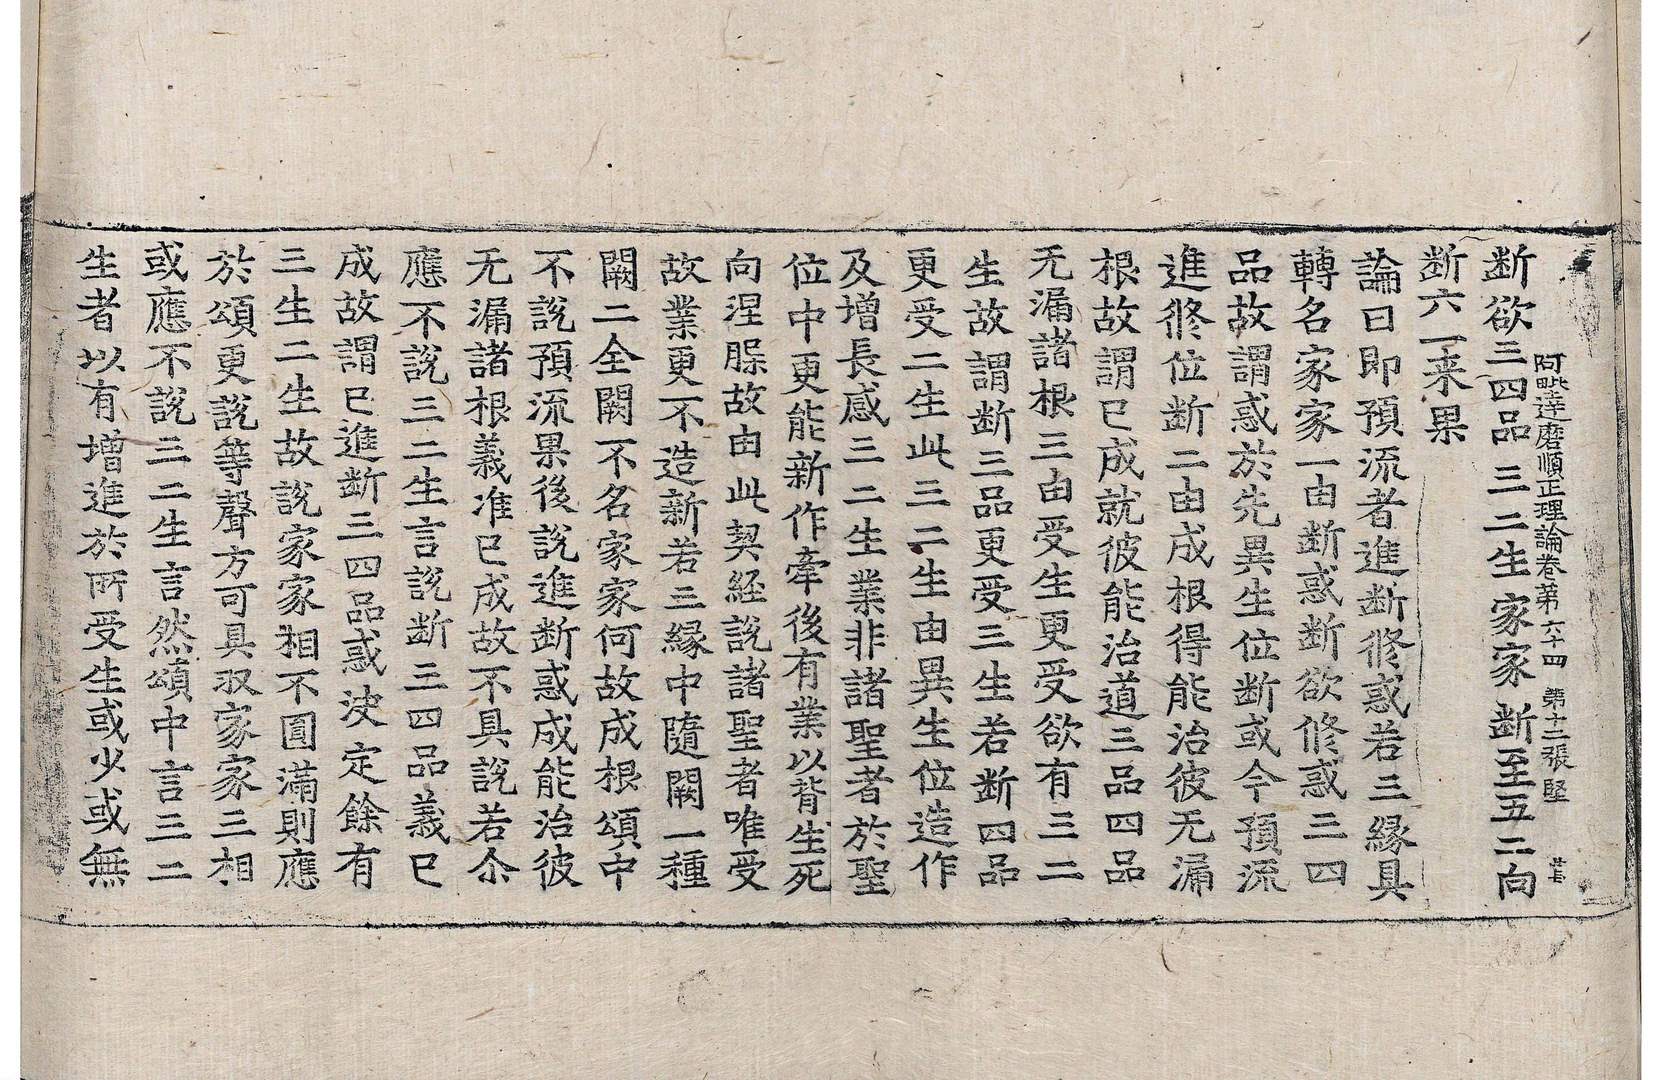 阿毗達磨順正理論卷第六十四　第十二張　堅
断欲三四品　三二生家家　断至五二向
断六一来果
論曰即預流者進断修惑若三緣具
轉名家家一由断惑断欲修惑三四
品故謂惑於先異生位断或今預流
進修位断二由成根得能治彼无漏
根故謂已成就彼能治道三品四品
无漏諸根三由受生更受欲有三二
生故謂断三品更受三生若断四品
更受二生此三二生由異生位造作
及增長感三二生業非諸聖者於聖
位中更能新作牽後有業以背生死
向涅槃故由此契経說諸聖者唯受
故業更不造新若三緣中隨闕一種
闕二全闕不名家家何故成根頌中
不說預流果後說進断惑成能治彼
无漏諸根義准已成故不具說若尒
應不說三二生言說断三四品義已
成故謂已進断三四品惑决定餘有
三生二生故說家家相不圓滿則應
於頌更說等聲方可具収家家三相
或應不說三二生言然頌中言三二
生者以有增進於所受生或少或無